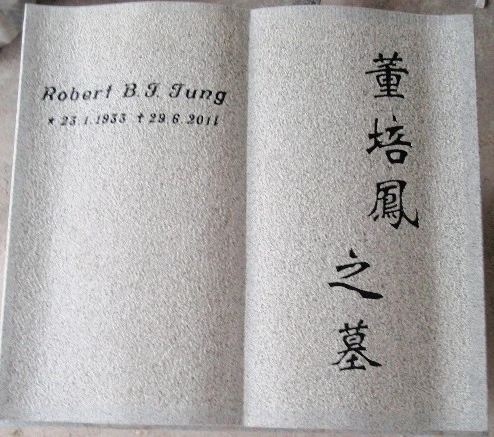 Robert B.T. Tung
* 23.1.1933 † 29.6.2011
董培鳳
之墓